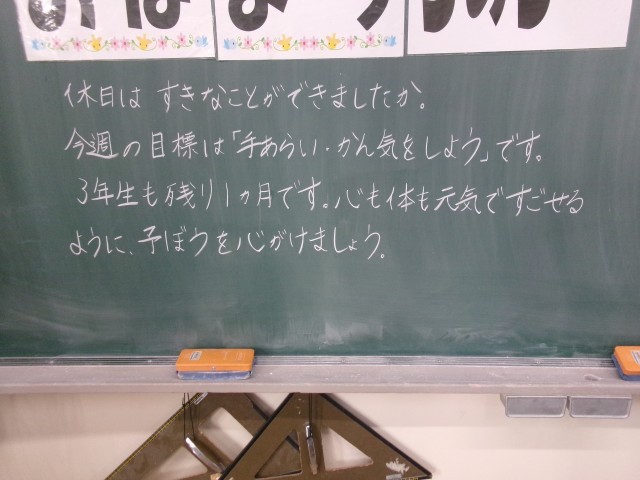 休日は すきなことができましたか。
今週の目標は「手あらい・かん気をしよう」です。
3年生も残り1ヵ月です。心も体も元気ですごせる
ように、予ぼうを心がけましょう。